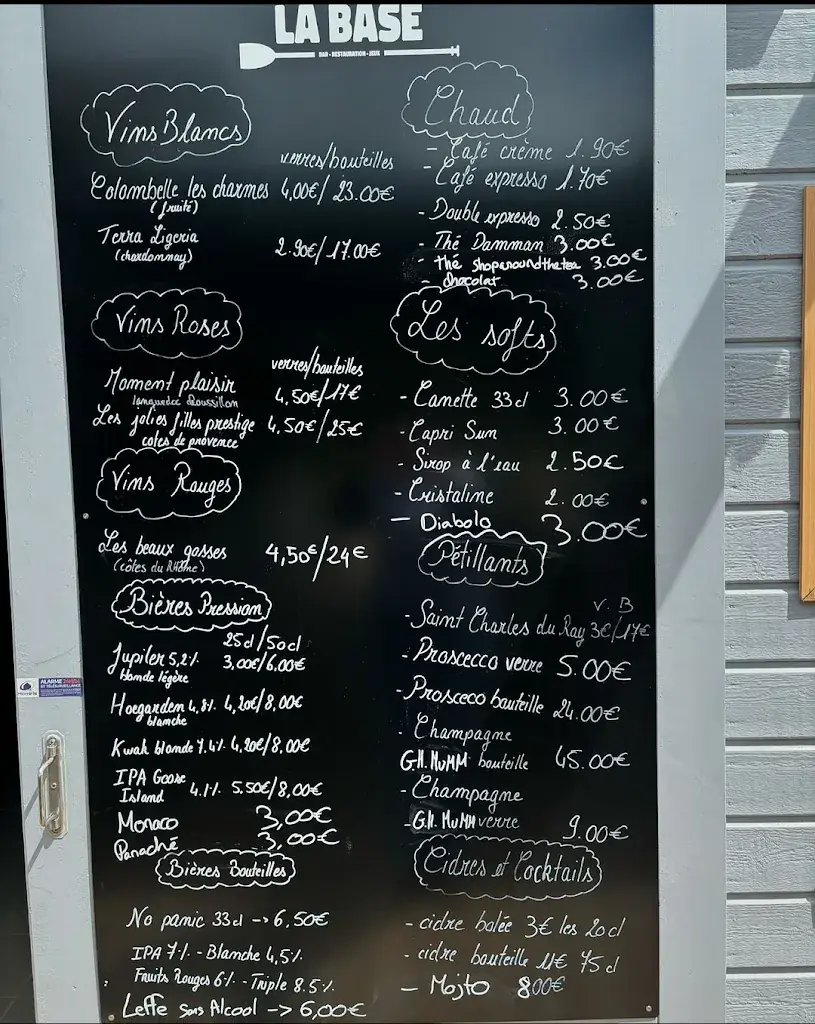 LA BASE
BAR - RESTAURATION - JEUX
Vins Blancs
verres/bouteilles
Colombelle les charmes 4,00€/ 23.00€
(fruité)
Terra Ligeria 2.90€/ 17.00€
(chardonnay)
Vins Roses
verres/bouteilles
Moment plaisir 4,50€/17€
languedoc Roussillon
Les jolies filles prestige 4,50€/25€
cotes de provence
Vins Rouges
Les beaux gosses 4,50€/24€
(côtes du Rhône)
Bières Pression
25cl/50cl
Jupiler 5,2% 3,00€/6.00€
blonde légère
Hoegarden 4,8% 4,20€/8,00€
blanche
Kwak blonde 7.4% 4,20€/8,00€
IPA Goose
Island 4.1% 5.50€/8,00€
Monaco 3,00€
Panaché 3,00€
Bières Bouteilles
No panic 33cl -> 6,50€
IPA 7% - Blanche 4,5%
Fruits Rouges 6% - Triple 8.5%
Leffe Sans Alcool -> 6,00€
Chaud
- Café crème 1.90€
- Café expresso 1.70€
- Double expresso 2.50€
- Thé Damman 3.00€
- Thé shoparoundthetea 3.00€
- Chocolat 3.00€
Les softs
- Canette 33cl 3.00€
- Capri Sun 3.00€
- Sirop à l'eau 2.50€
- Cristaline 2.00€
- Diabolo 3.00€
Pétillants
V. B
- Saint Charles du Ray 3€/17€
- Proscecco verre 5.00€
- Prosceco bouteille 24.00€
- Champagne
G.H. MUMM bouteille 45.00€
- Champagne
- G.H. MUMM verre 9.00€
Cidres et Cocktails
- cidre bolée 3€ les 20cl
- cidre bouteille 11€ 75cl
- Mojto 800€